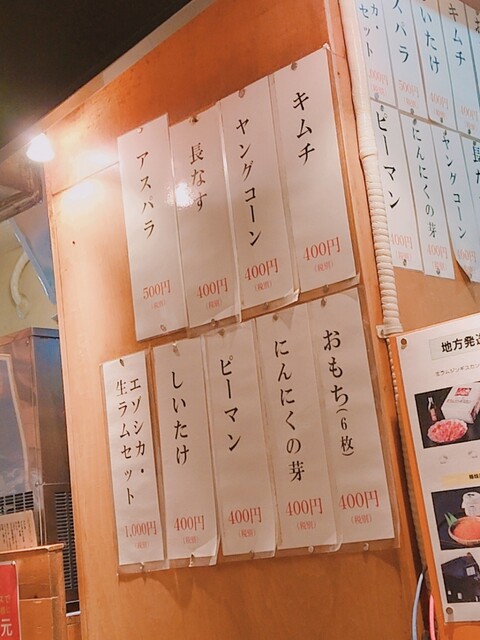 キムチ
400円
(税別)
ヤングコーン
400円
(税別)
長なす
400円
(税別)
アスパラ
500円
(税別)
おもち(6枚)
400円
(税別)
にんにくの芽
400円
(税別)
ピーマン
400円
(税別)
しいたけ
400円
(税別)
エゾシカ・
生ラムセット
1,000円
(税別)
キムチ
400円
しいたけ
400円
アスパラ
500円
セット
ヤングコーン
400円
にんにくの芽
400円
ピーマン
400円
地方発送
元